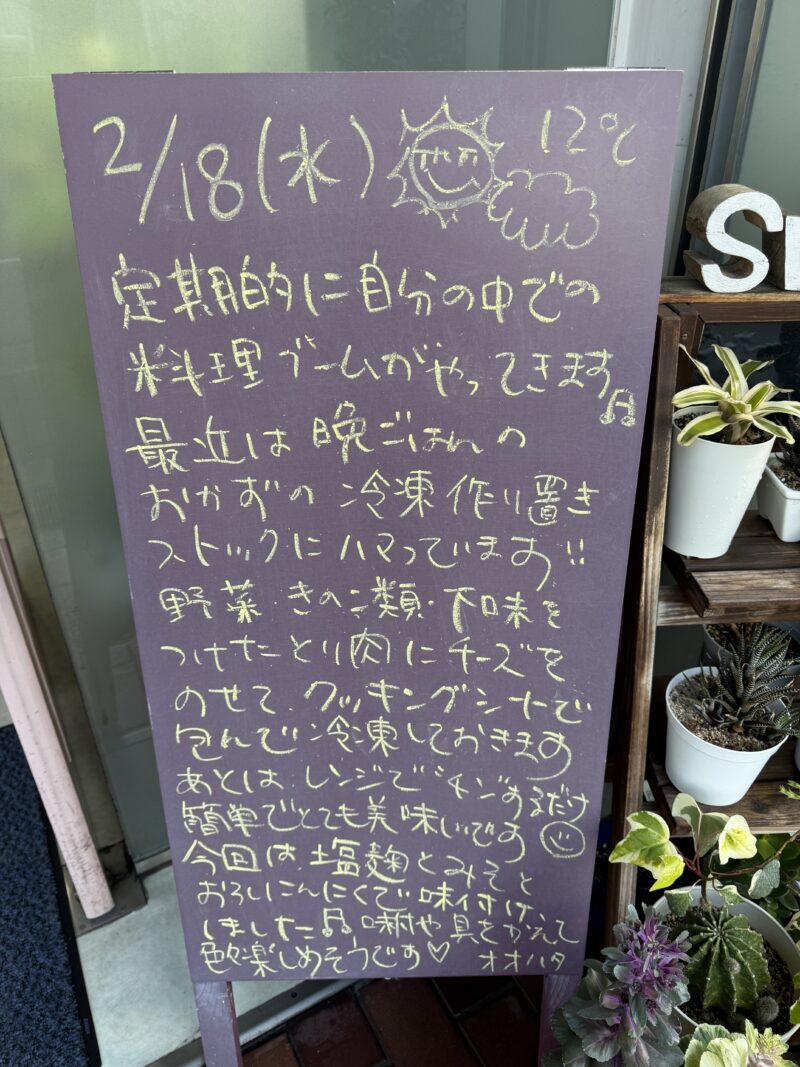 2/18(水) 12℃
定期的に自分の中での
料理ブームがやってきます♫
最近は晩ごはんの
おかずの冷凍作り置き
ストックにハマっています!!
野菜・きのこ類・下味を
つけたとり肉にチーズを
のせて、クッキングシートで
包んで冷凍しておきます
あとは、レンジでチンするだけ
簡単でとても美味しいです☺
今回は、塩麹とみそと
おろしにんにくで味付け
しました♫ 味付や具をかえて
色々楽しめそうです♡ オオハタ